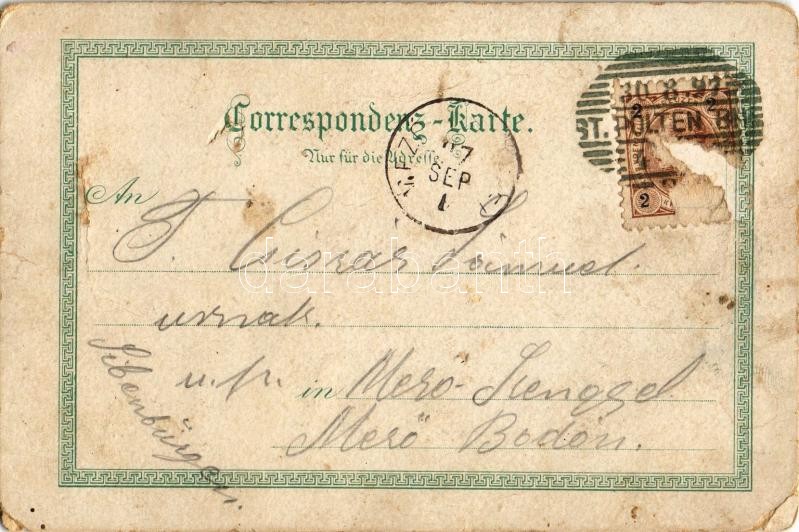 Correspondenz-Karte.
Nur für die Adresse.
30 8 97
ST. PÖLTEN B
1
97
SEP
1
2 2
2
An T. Csiszár Sámuel
urnak.
u. p. in Mező-Szenggel
Mező Bodon.
Sibenbürgen.
darabanth